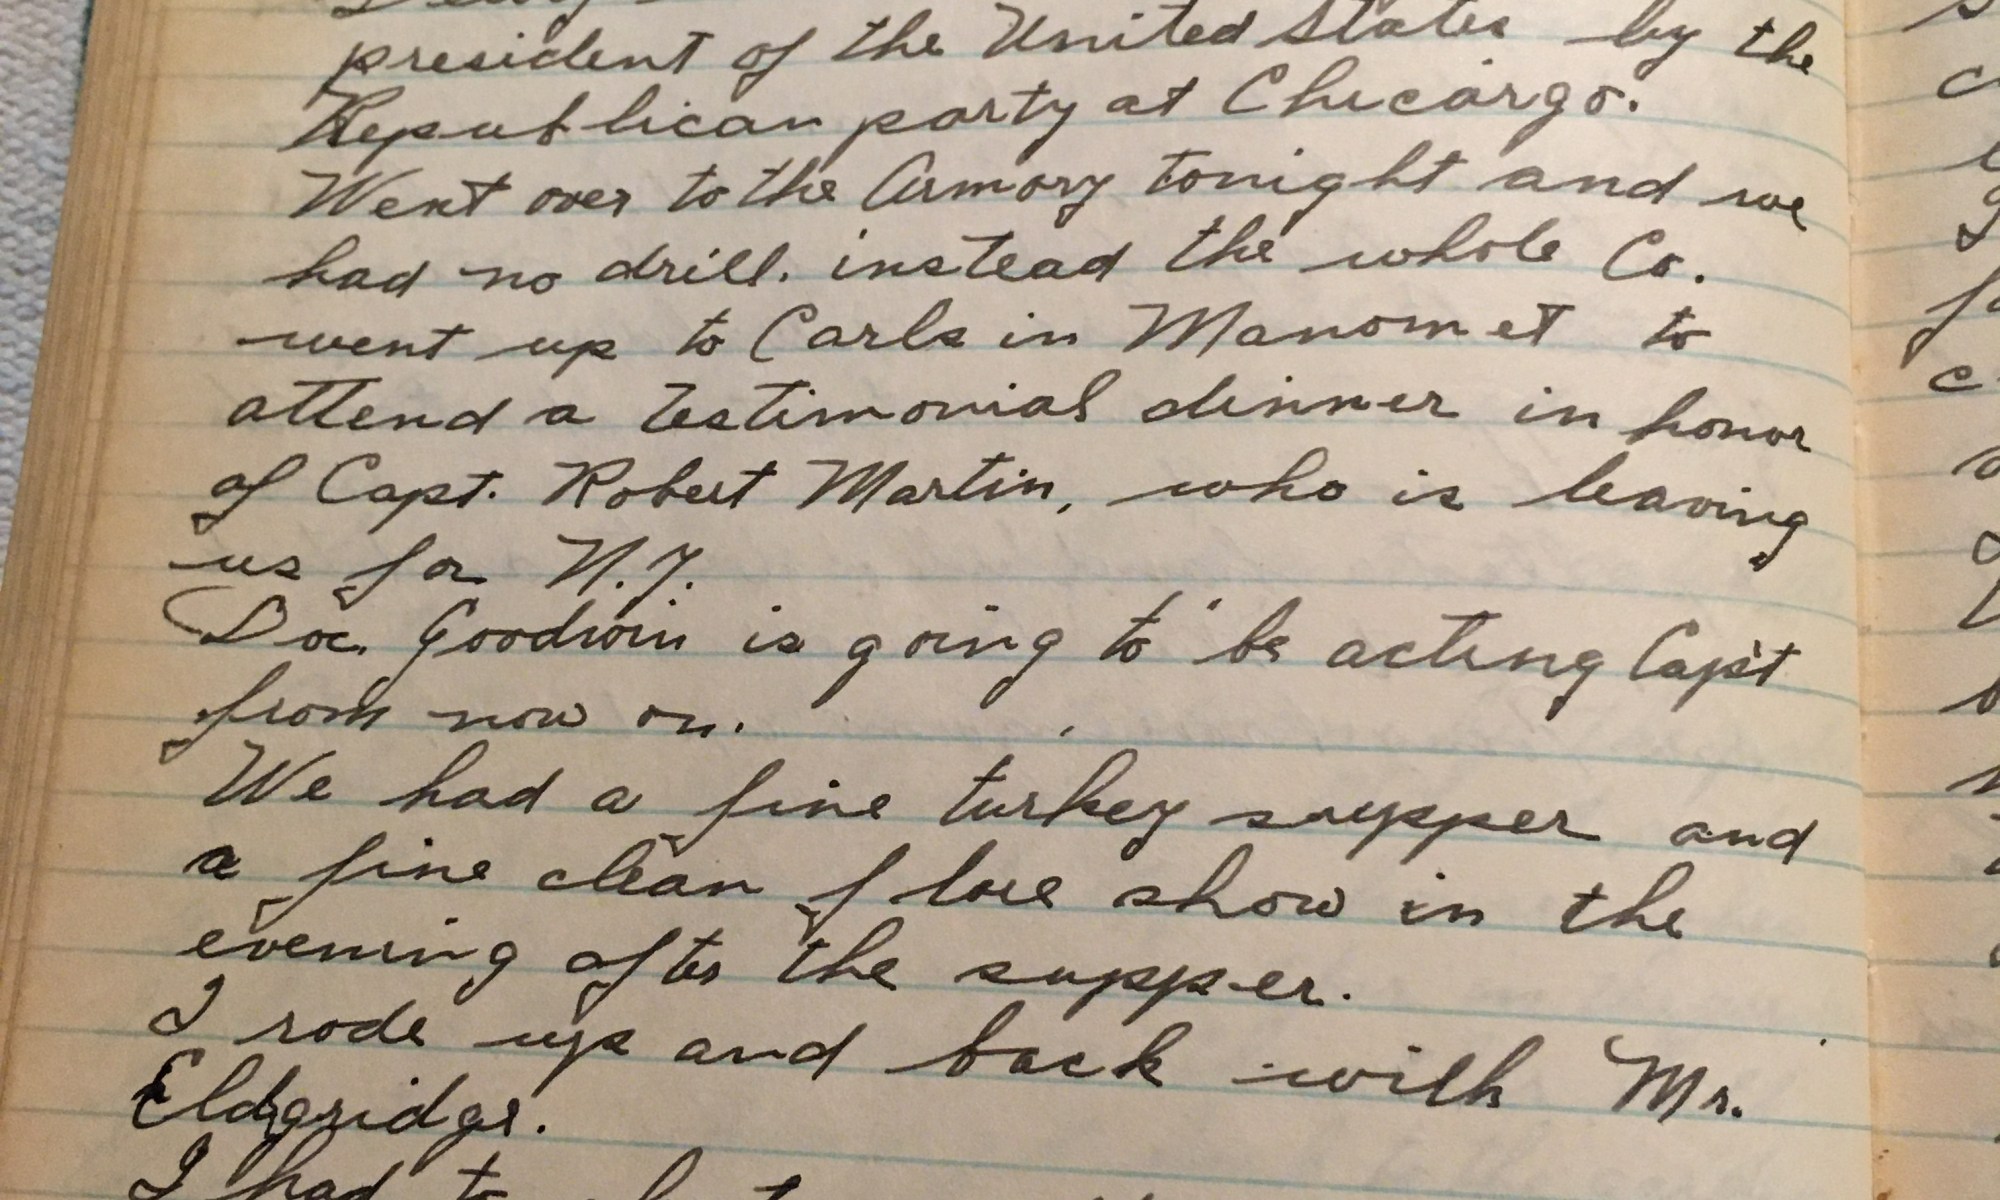 president of the United States by the
Republican party at Chicargo.
Went over to the Armory tonight and we
had no drill. instead the whole Co.
went up to Carls in Manomet to
attend a testimonial dinner in honor
of Capt. Robert Martin, who is leaving
us for N.J.
Doc. Goodwin is going to be acting Cap't
from now on.
We had a fine turkey supper and
a fine clean floor show in the
evening after the supper.
I rode up and back with Mr.
Eldgridge.
I had to